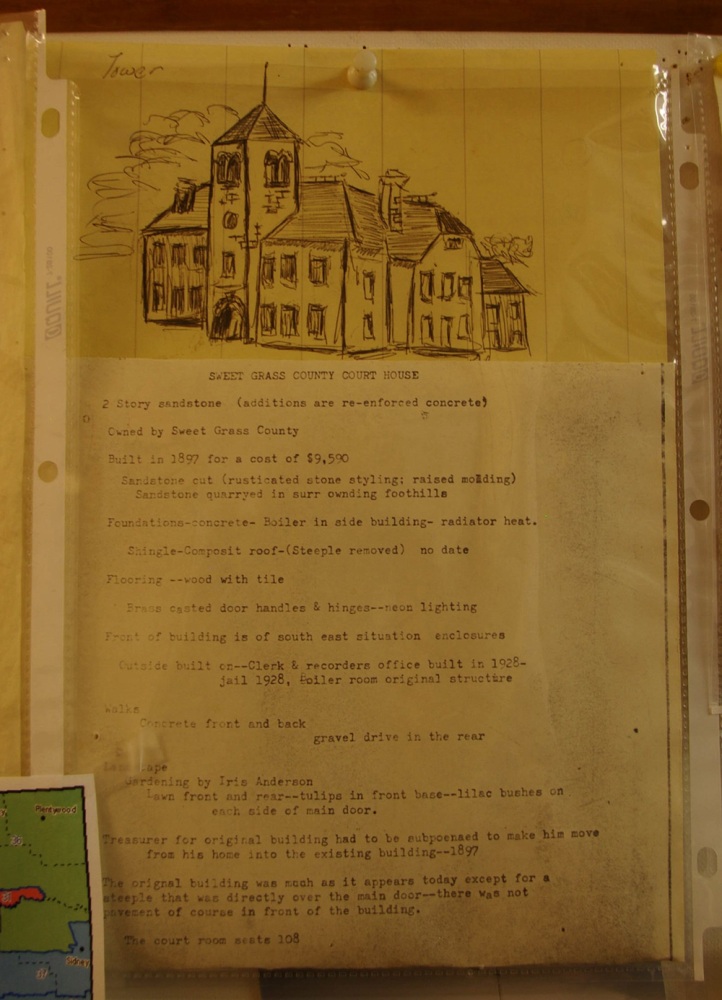 Tower
SWEET GRASS COUNTY COURT HOUSE
2 Story sandstone (additions are re-enforced concrete)
Owned by Sweet Grass County
Built in 1897 for a cost of $9,590
Sandstone cut (rusticated stone styling; raised molding)
Sandstone quarryed in surr ownding foothills
Foundations-concrete- Boiler in side building- radiator heat.
Shingle-Composit roof-(Steeple removed) no date
Flooring --wood with tile
Brass casted door handles & hinges--neon lighting
Front of building is of south east situation enclosures
Outside built on--Clerk & recorders office built in 1928-
jail 1928, Boiler room original structure
Walks
Concrete front and back
gravel drive in the rear
Gardening by Iris Anderson
Lawn front and rear--tulips in front base--lilac bushes on
each side of main door.
Tressurer for original building had to be subpoenaed to make him move
from his home into the existing building--1897
The orignal building was much as it appears today except for a
steeple that was directly over the main door--there was not
pavement of course in front of the building.
The court room seats 108
Plentywood
Sidney